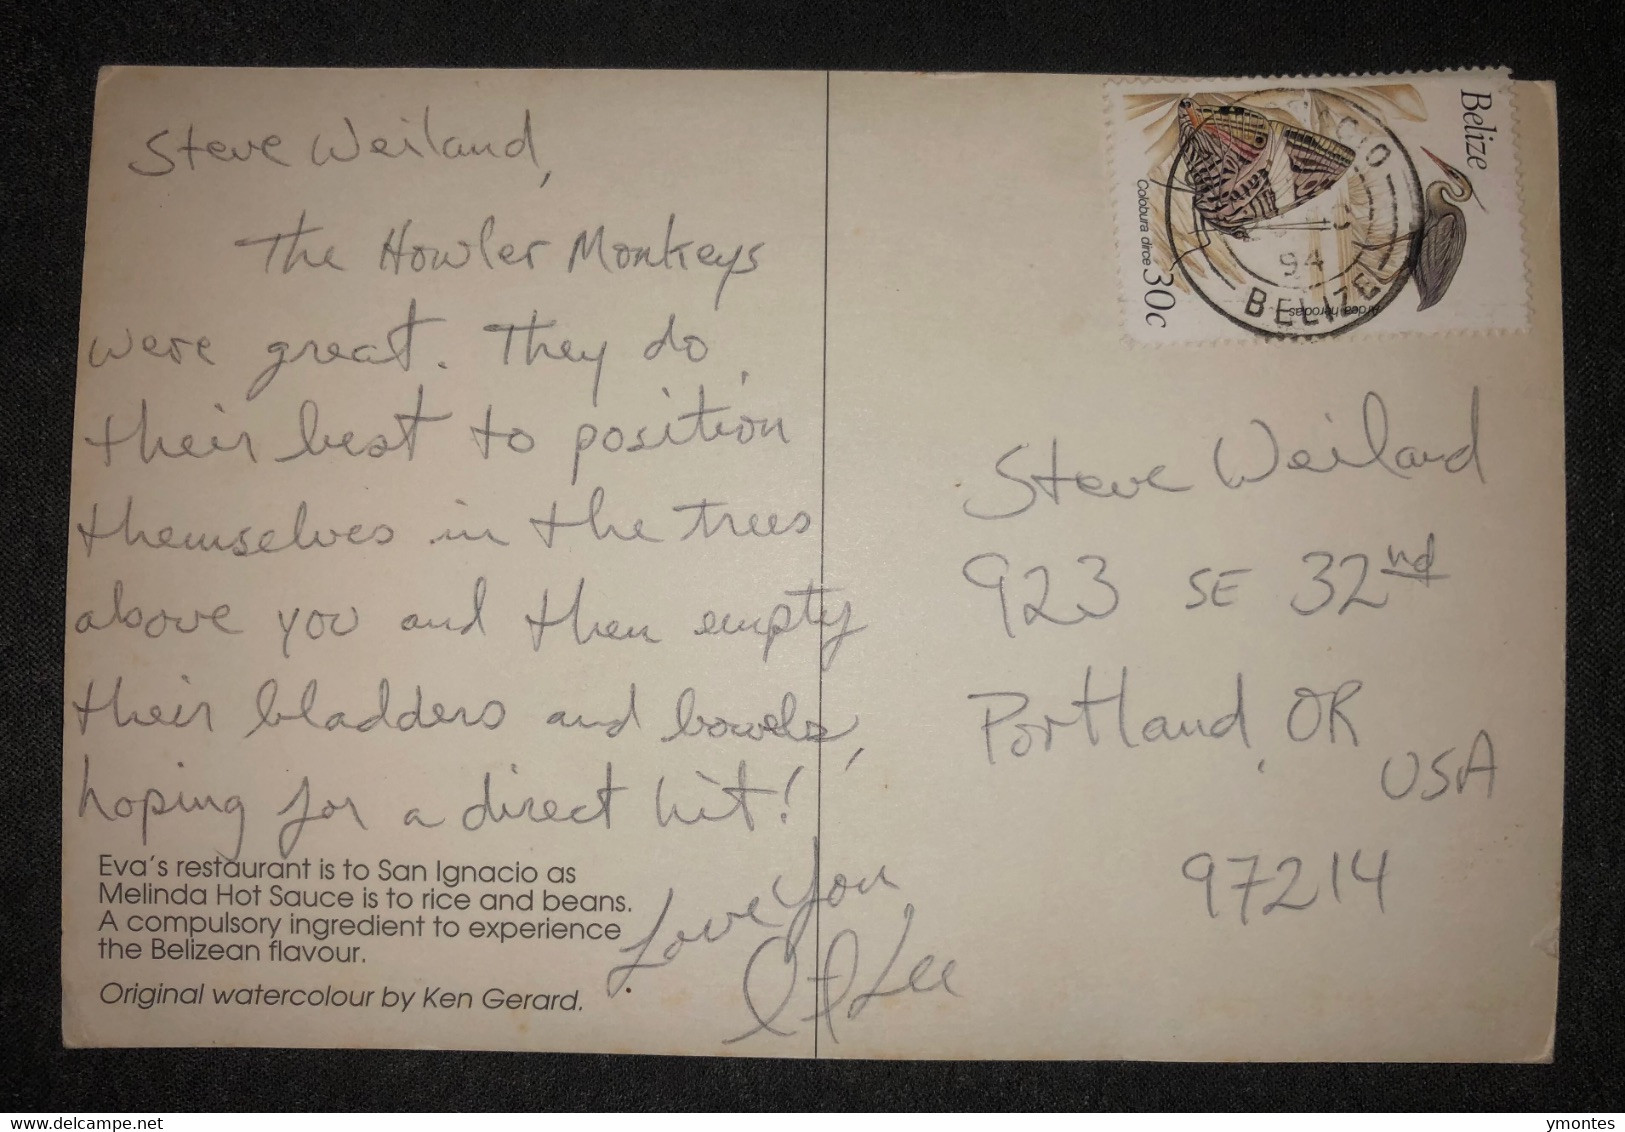 Steve Weiland,
The Howler Monkeys
were great. They do
their best to position
themselves in the trees
above you and then empty
their bladders and bowels,
hoping for a direct hit!
Love You
Lee
Eva's restaurant is to San Ignacio as
Melinda Hot Sauce is to rice and beans.
A compulsory ingredient to experience
the Belizean flavour.
Original watercolour by Ken Gerard.
Belize
Colobura dirce
30c
Ardea herodias
94
BELIZE
Steve Weiland
923 SE 32nd
Portland, OR
USA
97214
delcampe.net
ymontes